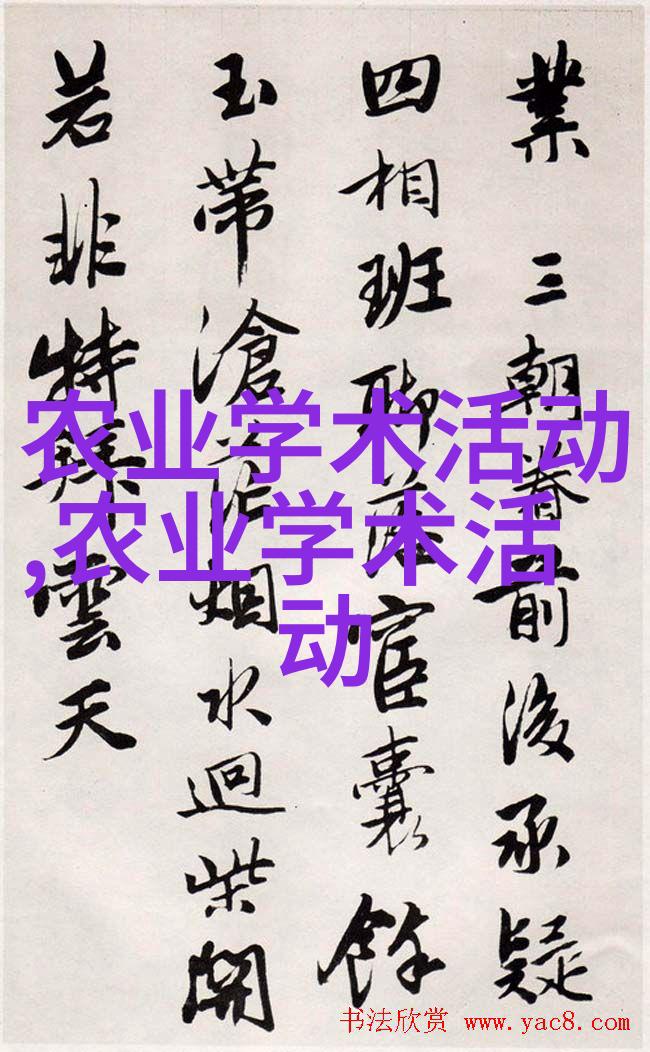 業 三朝眷前後承疑
四相班聯宦囊餘
玉帶滄烟水迴柴開
若非特拜雲天
农业学术活动
,农业学术活
动
书法欣赏 www.yac8.com